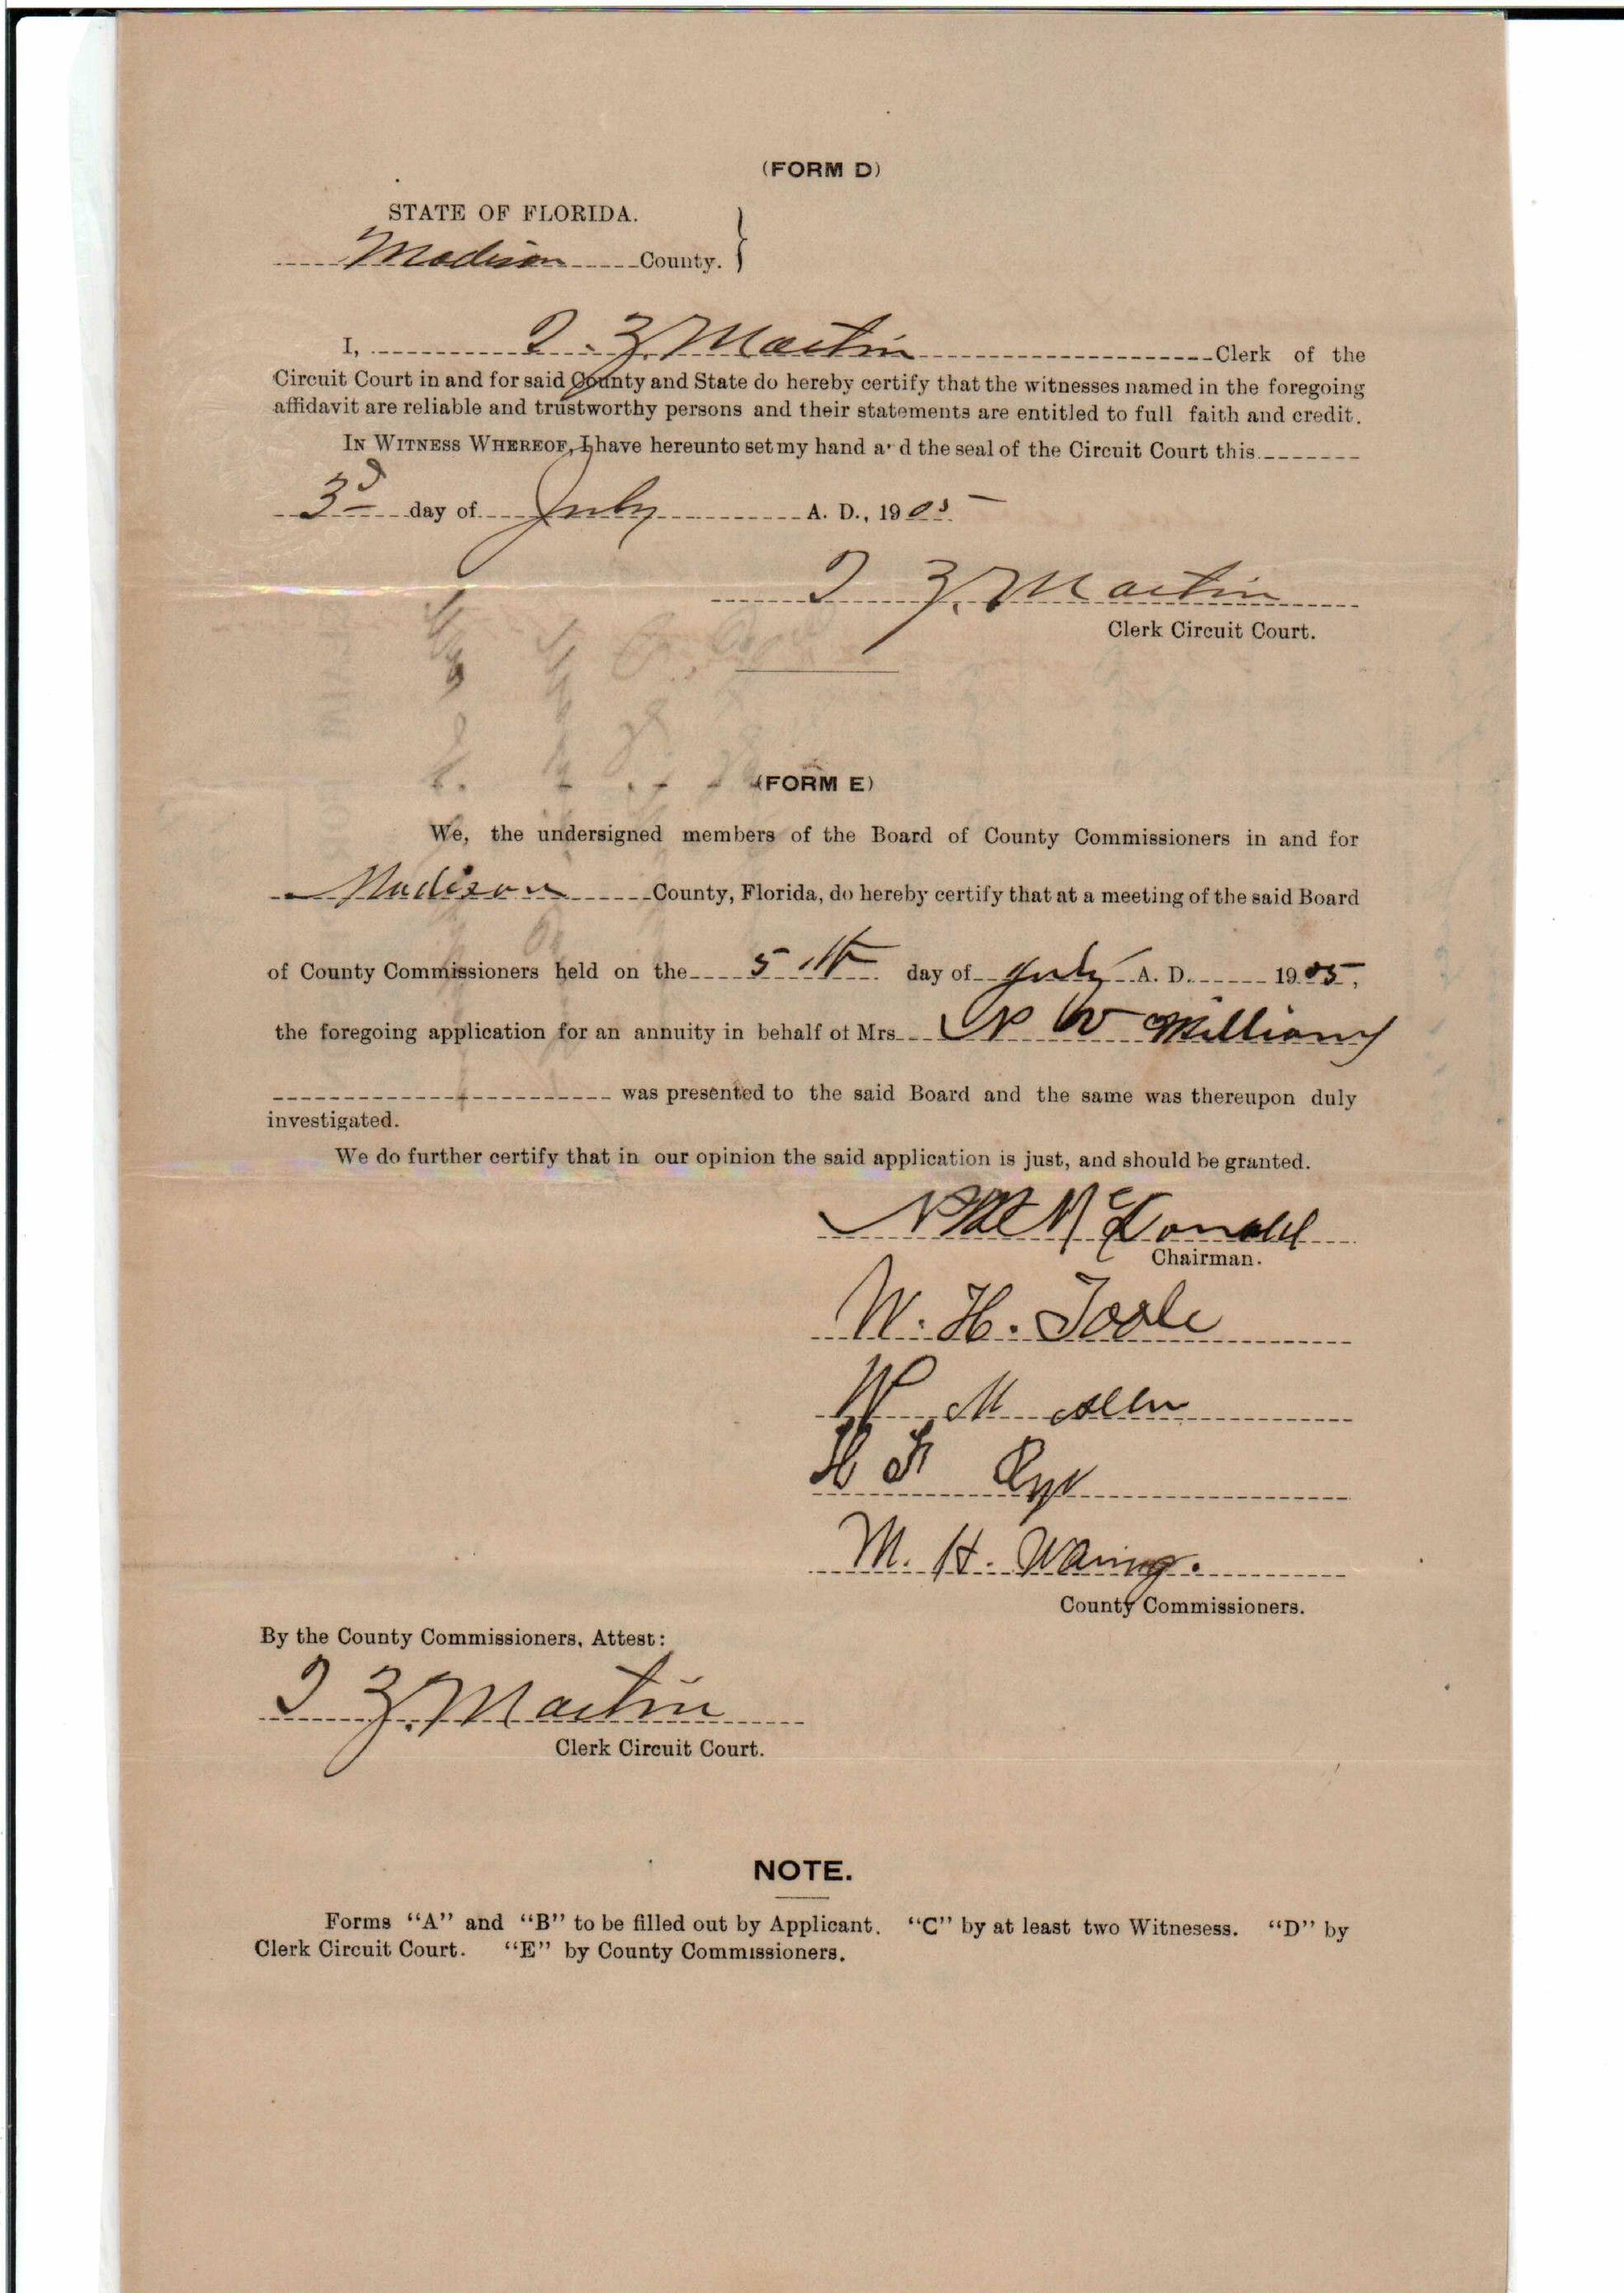 (FORM D)
STATE OF FLORIDA.
Madison County.
I, T. Z. Martin Clerk of the
Circuit Court in and for said County and State do hereby certify that the witnesses named in the foregoing
affidavit are reliable and trustworthy persons and their statements are entitled to full faith and credit.
IN WITNESS WHEREOF, I have hereunto set my hand a d the seal of the Circuit Court this
3d day of July A. D., 1905
T Z. Martin
Clerk Circuit Court.
(FORM E)
We, the undersigned members of the Board of County Commissioners in and for
Madison County, Florida, do hereby certify that at a meeting of the said Board
of County Commissioners held on the 5th day of July A. D. 1905,
the foregoing application for an annuity in behalf of Mrs N W
was presented to the said Board and the same was thereupon duly
investigated.
We do further certify that in our opinion the said application is just, and should be granted.
McDonald
Chairman.
W. H. Toole
W M
H
M. H. Waring.
County Commissioners.
By the County Commissioners, Attest:
T Z. Martin
Clerk Circuit Court.
NOTE.
Forms "A" and "B" to be filled out by Applicant. "C" by at least two Witnesess. "D" by
Clerk Circuit Court. "E" by County Commissioners.